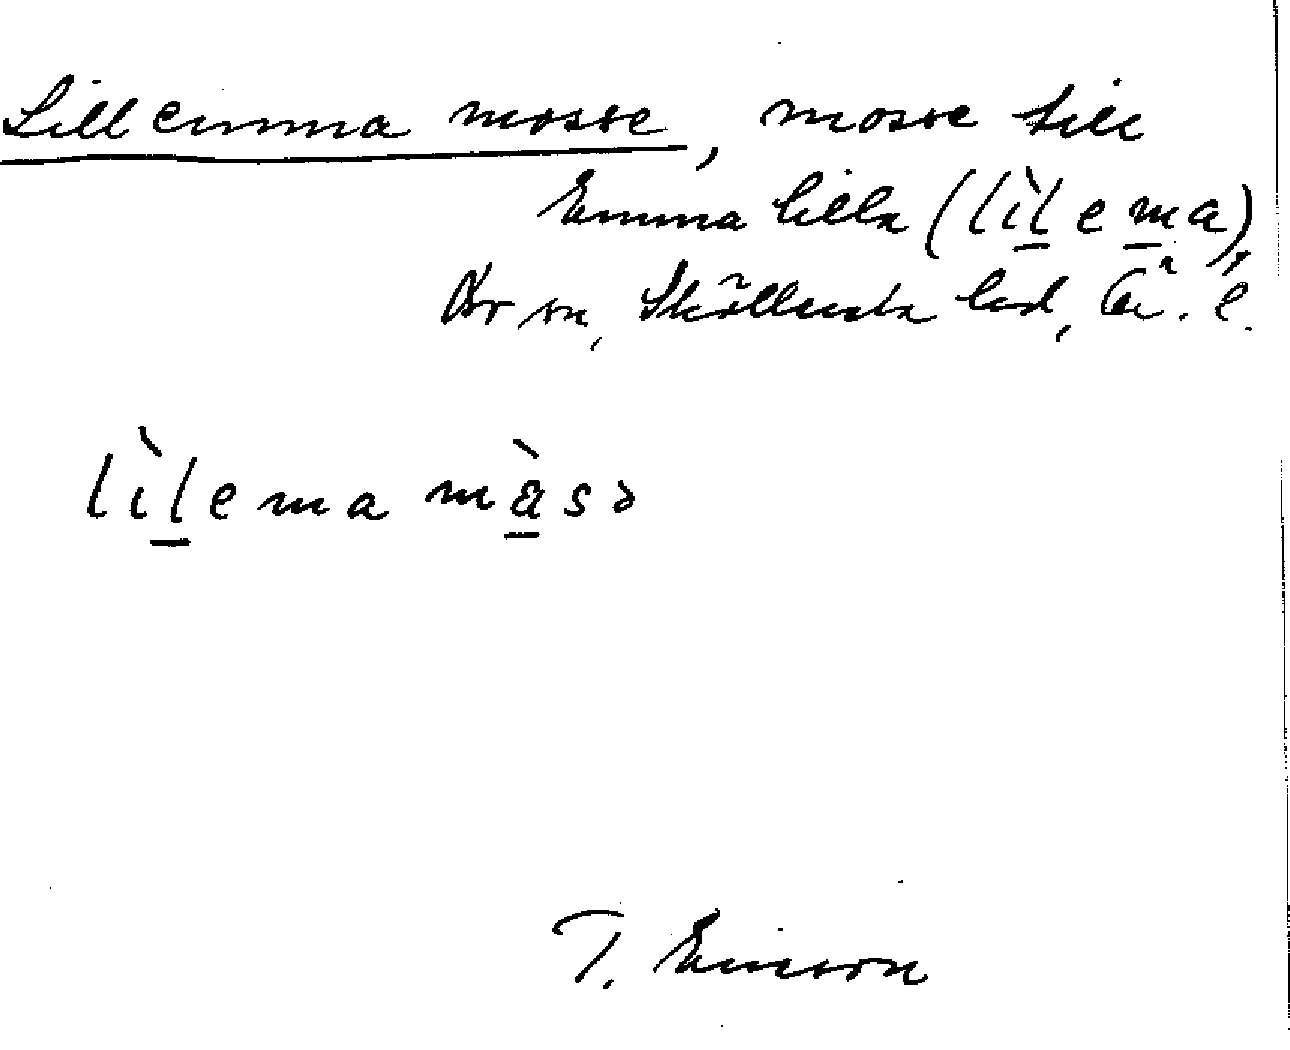 Lillemma mosse, mosse till
Emma lilla (lìlema),
sn, Sköllersta hd,
lìlema màsə
T. Ericson